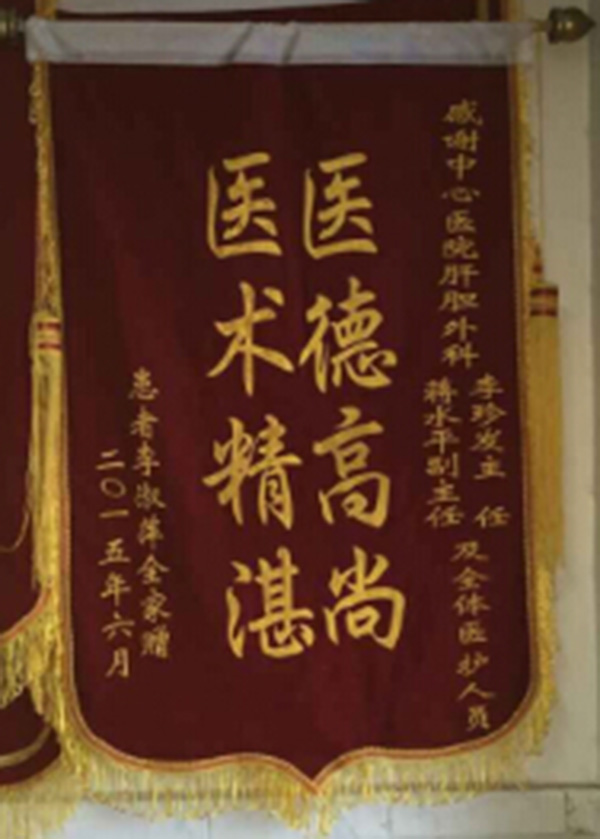 感谢中心医院肝胆外科
李珍发主任
蒋水平副主任
及全体医护人员
医德高尚
医术精湛
患者李淑萍全家赠
二〇一五年六月